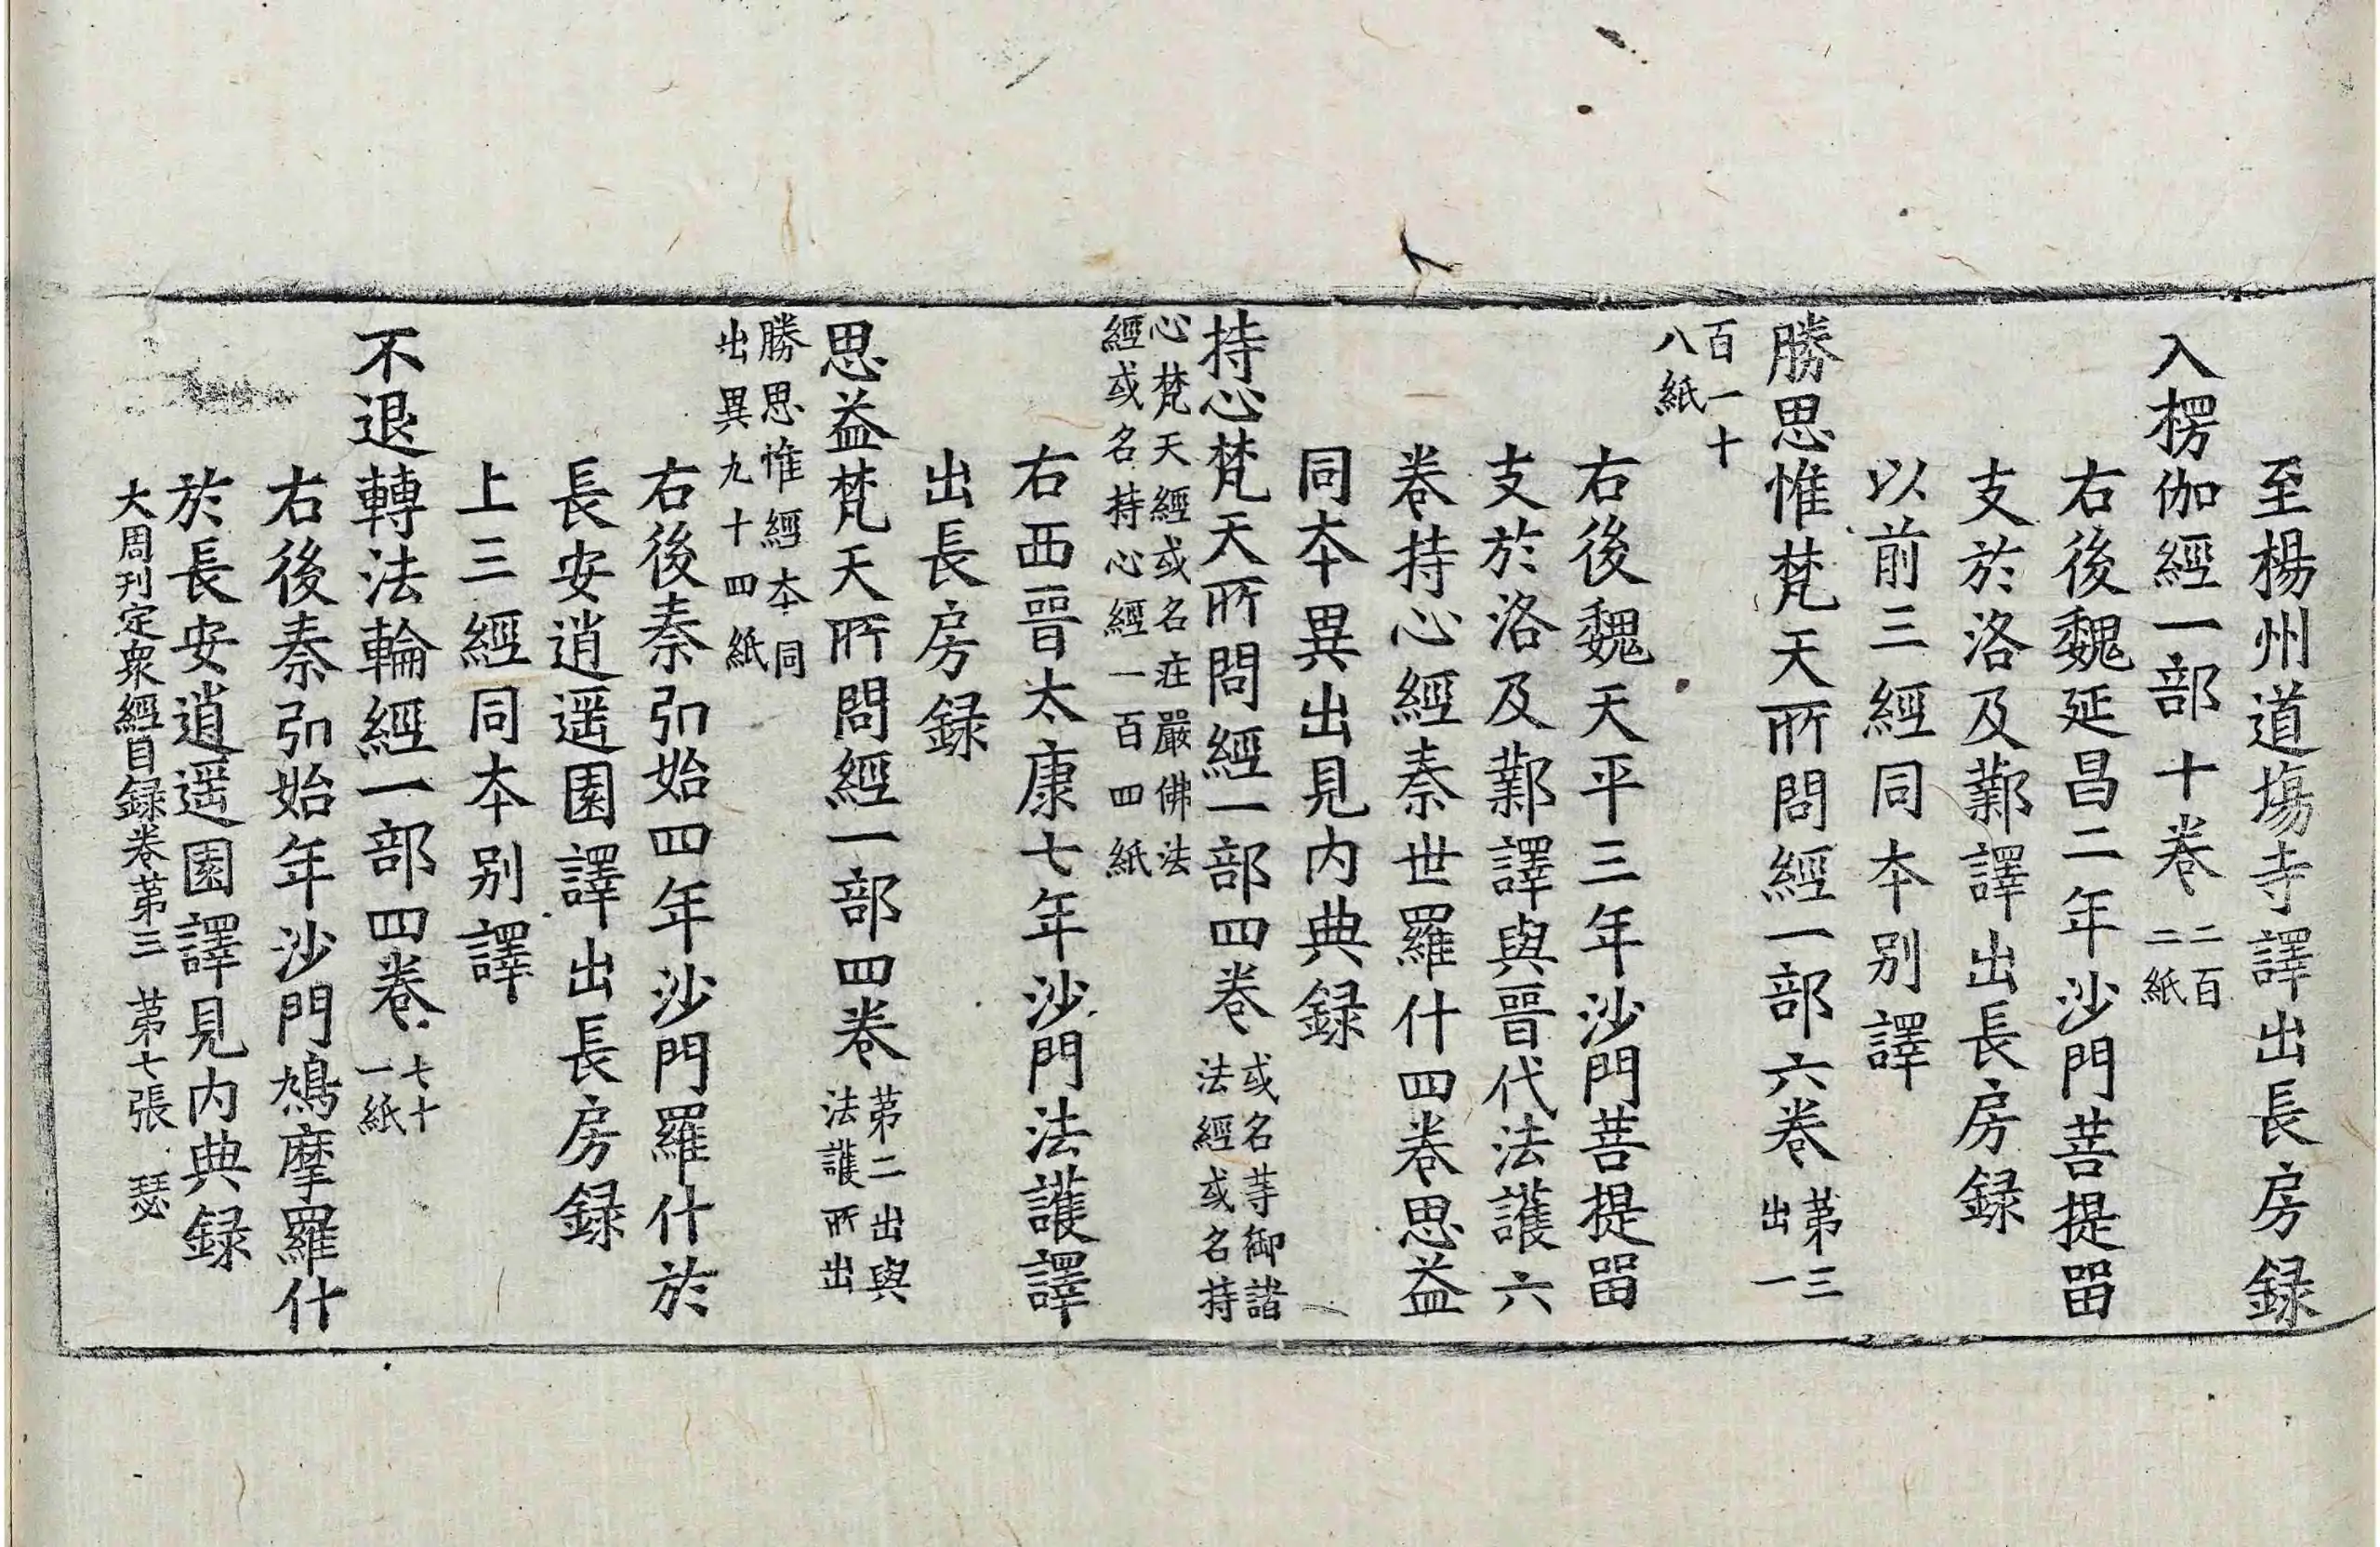 至楊州道塲寺譯出長房録
入楞伽經一部十卷二百二紙
右後魏延昌二年沙門菩提畱
支於洛及鄴譯出長房録
以前三經同夲别譯
勝思惟梵天所問經一部六卷苐三出一
百一十八紙
右後魏天平三年沙門菩提畱
支於洛及鄴譯與晉代法護六
卷持心經秦世羅什四卷思益
同夲異出見内典録
持心梵天所問經一部四卷或名䓁御諸法經或名持
心梵天經或名庄嚴佛法經或名持心經一百四紙
右西晉太康七年沙門法護譯
出長房録
思益梵天所問經一部四卷苐二出與法護所出
勝思惟經夲同出異九十四紙
右後秦弘始四年沙門羅什於
長安逍遥園譯出長房録
上三經同夲别譯
不退轉法輪經一部四卷七十一紙
右後秦弘始年沙門鳩摩羅什
於長安逍遥園譯見内典録
大周刊定衆經目録卷苐三 苐七張 瑟